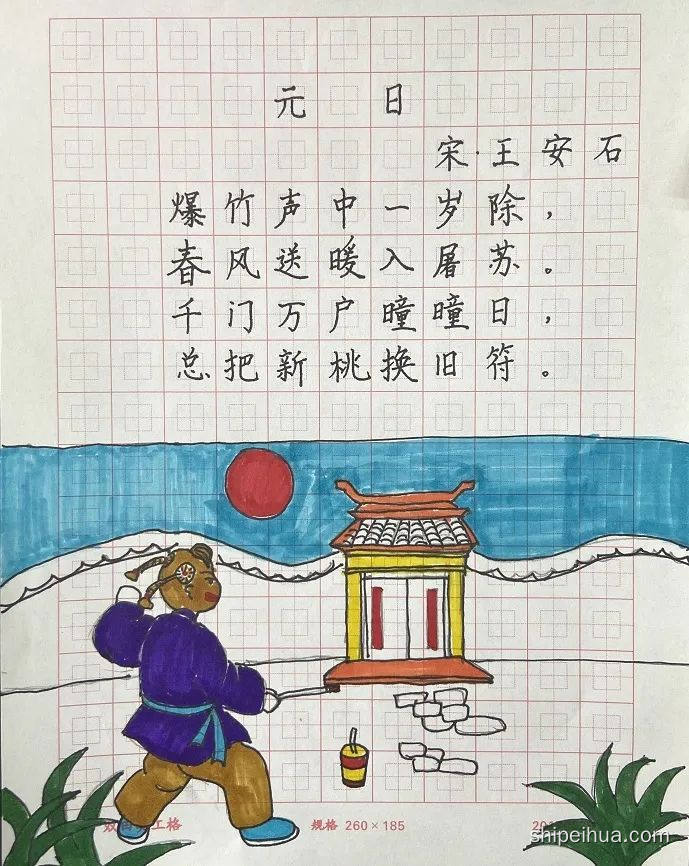 元日
宋·王安石
爆竹声中一岁除，
春风送暖入屠苏。
千门万户曈曈日，
总把新桃换旧符。
工格
规格 260×185
shipeihua.com